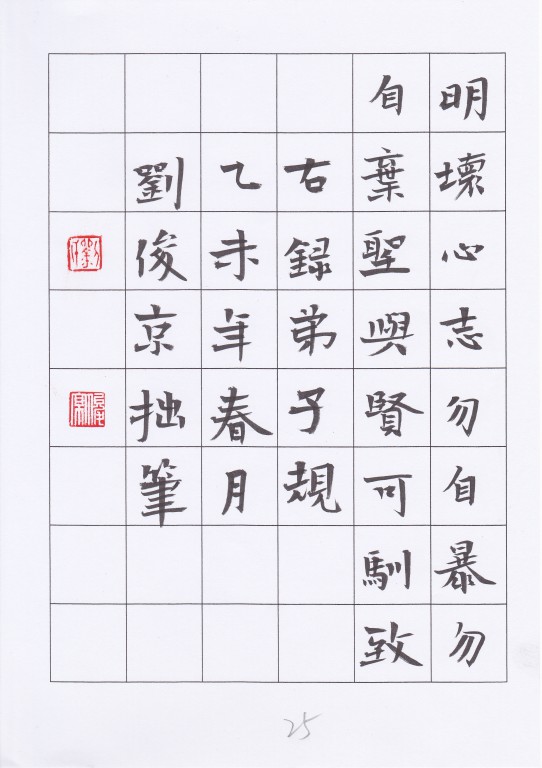 明壞心志勿自暴勿
自棄聖與賢可馴致
右録弟子規
乙未年春月
劉俊京拙筆
25